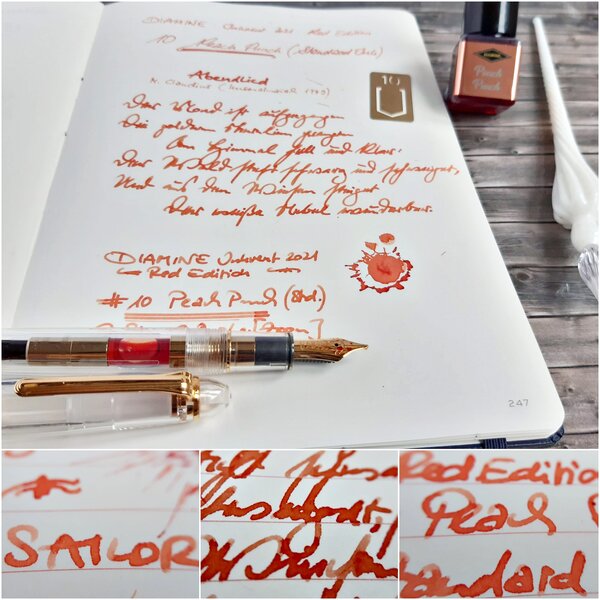 DIAMINE Inkvent 2021 Red Edition
10 Peach Punch (Standard Ink)
Abendlied
M. Claudius
Der Mond ist aufgegangen
Die goldnen Sternlein prangen
Am Himmel hell und klar.
Der Wald steht schwarz und schweiget,
Und aus den Wiesen steiget
Der weiße Nebel wunderbar.
DIAMINE Inkvent 2021
Red Edition
#10 Peach Punch (Std.)
[Zoom]
247
10
DIAMINE
Peach
Punch
SAILOR
Wiesen
Red Edition
Peach
Standard